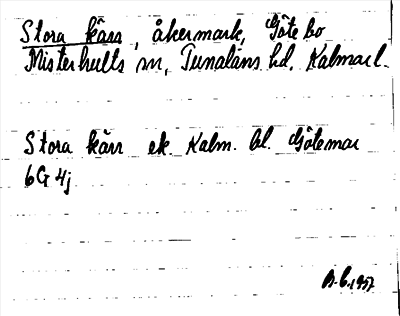 Stora kärr, åkermark, Götebo
Misterhults sn, Tunaläns hd, Kalmar l.
Stora kärr ek. Kalm. bl. Götemar
6G 4j
1957